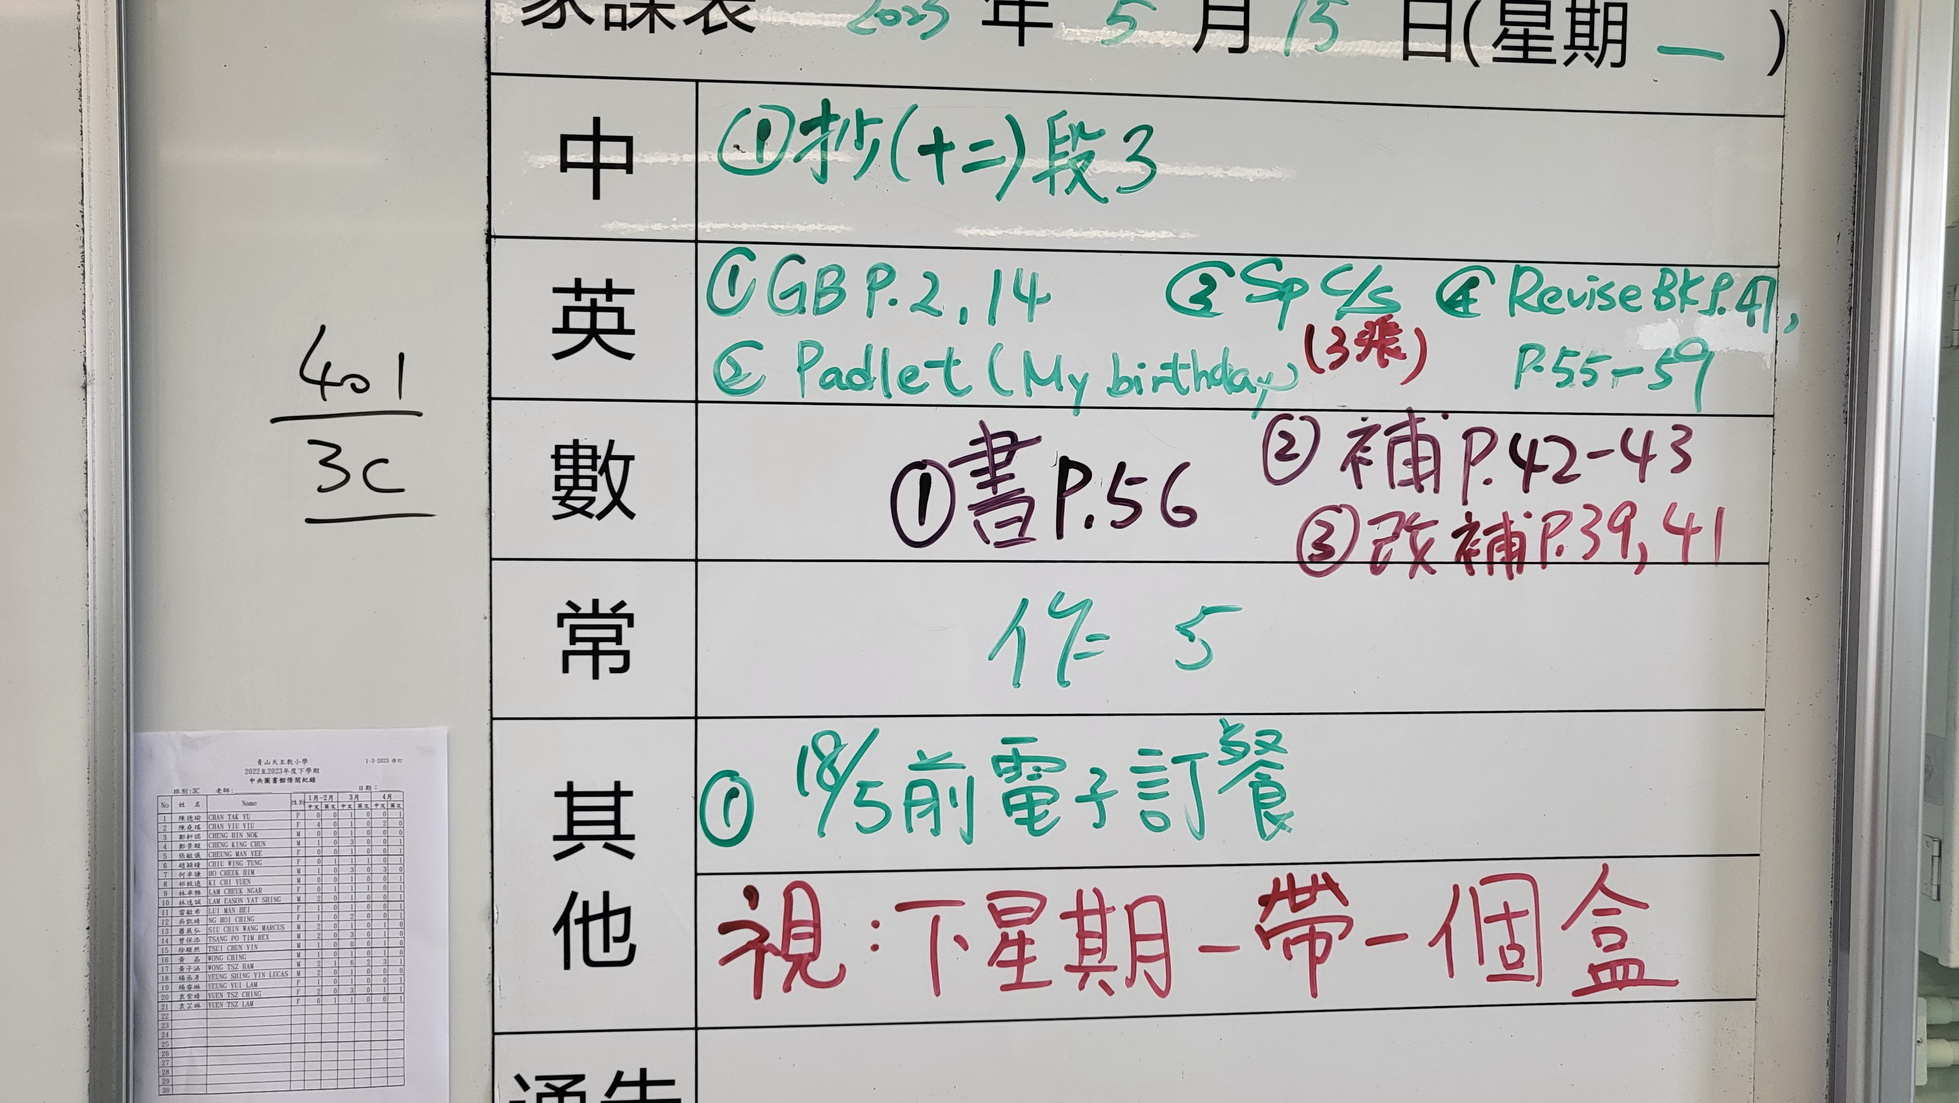 家課表 2023 年 5 月 15 日(星期 一 )
中 ①抄(十二)段3
英 ①GB P.2, 14 ③Sp C/S (3張) ④ Revise BK P.47,
② Padlet (My birthday) P.55-59
數 ①書P.56 ②補P.42-43
③改補P.39,41
常 作 5
其他 ① 18/5前電子訂餐
視:下星期一帶一個盒
通告
401
3C
青山天主教小學 1-3-2023 修訂
2022至2023年度下學期
中央圖書館借閱紀錄
班別:3C 老師: 日期:
No 姓 名 Name 性別 1月-2月 3月 4月
中文 英文 中文 英文 中文 英文
1 CHAN TAK YU F
2 CHAN YIU YIU F
3 CHENG HIN NOK M
4 CHENG KING CHUN M
5 CHEUNG MAN YEE F
6 CHIU WING TUNG F
7 HO CHEUK HIM M
8 KI CHI YUEN M
9 LAM CHEUK NGAR F
10 LAM EASON YAT SHING M
11 LUI MAN HEI F
12 NG HOI CHING F
13 SIU CHIN WANG MARCUS M
14 TSANG PO TIM REX M
15 TSUI CHUN YIN M
16 WONG CHING M
17 WONG TSZ HAM M
18 YEUNG SHING YIN LUCAS M
19 YEUNG YUI LAM F
20 YUEN TSZ CHING F
21 YUEN TSZ LAM F
22
23
24
25
26
27
28
29
30